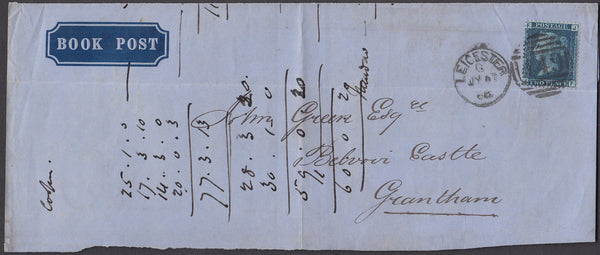 BOOK POST
LEICESTER
POSTAGE
John Green Esqre
Belvoir Castle
Grantham
25 . 1 . 0
17 . 3 . 10
14 . 3 . 0
20 . 0 . 3
77 . 3 . 13
28 . 3 . 20
30 . 1 . 0
59 . 0 . 20
60 . 0 . 29